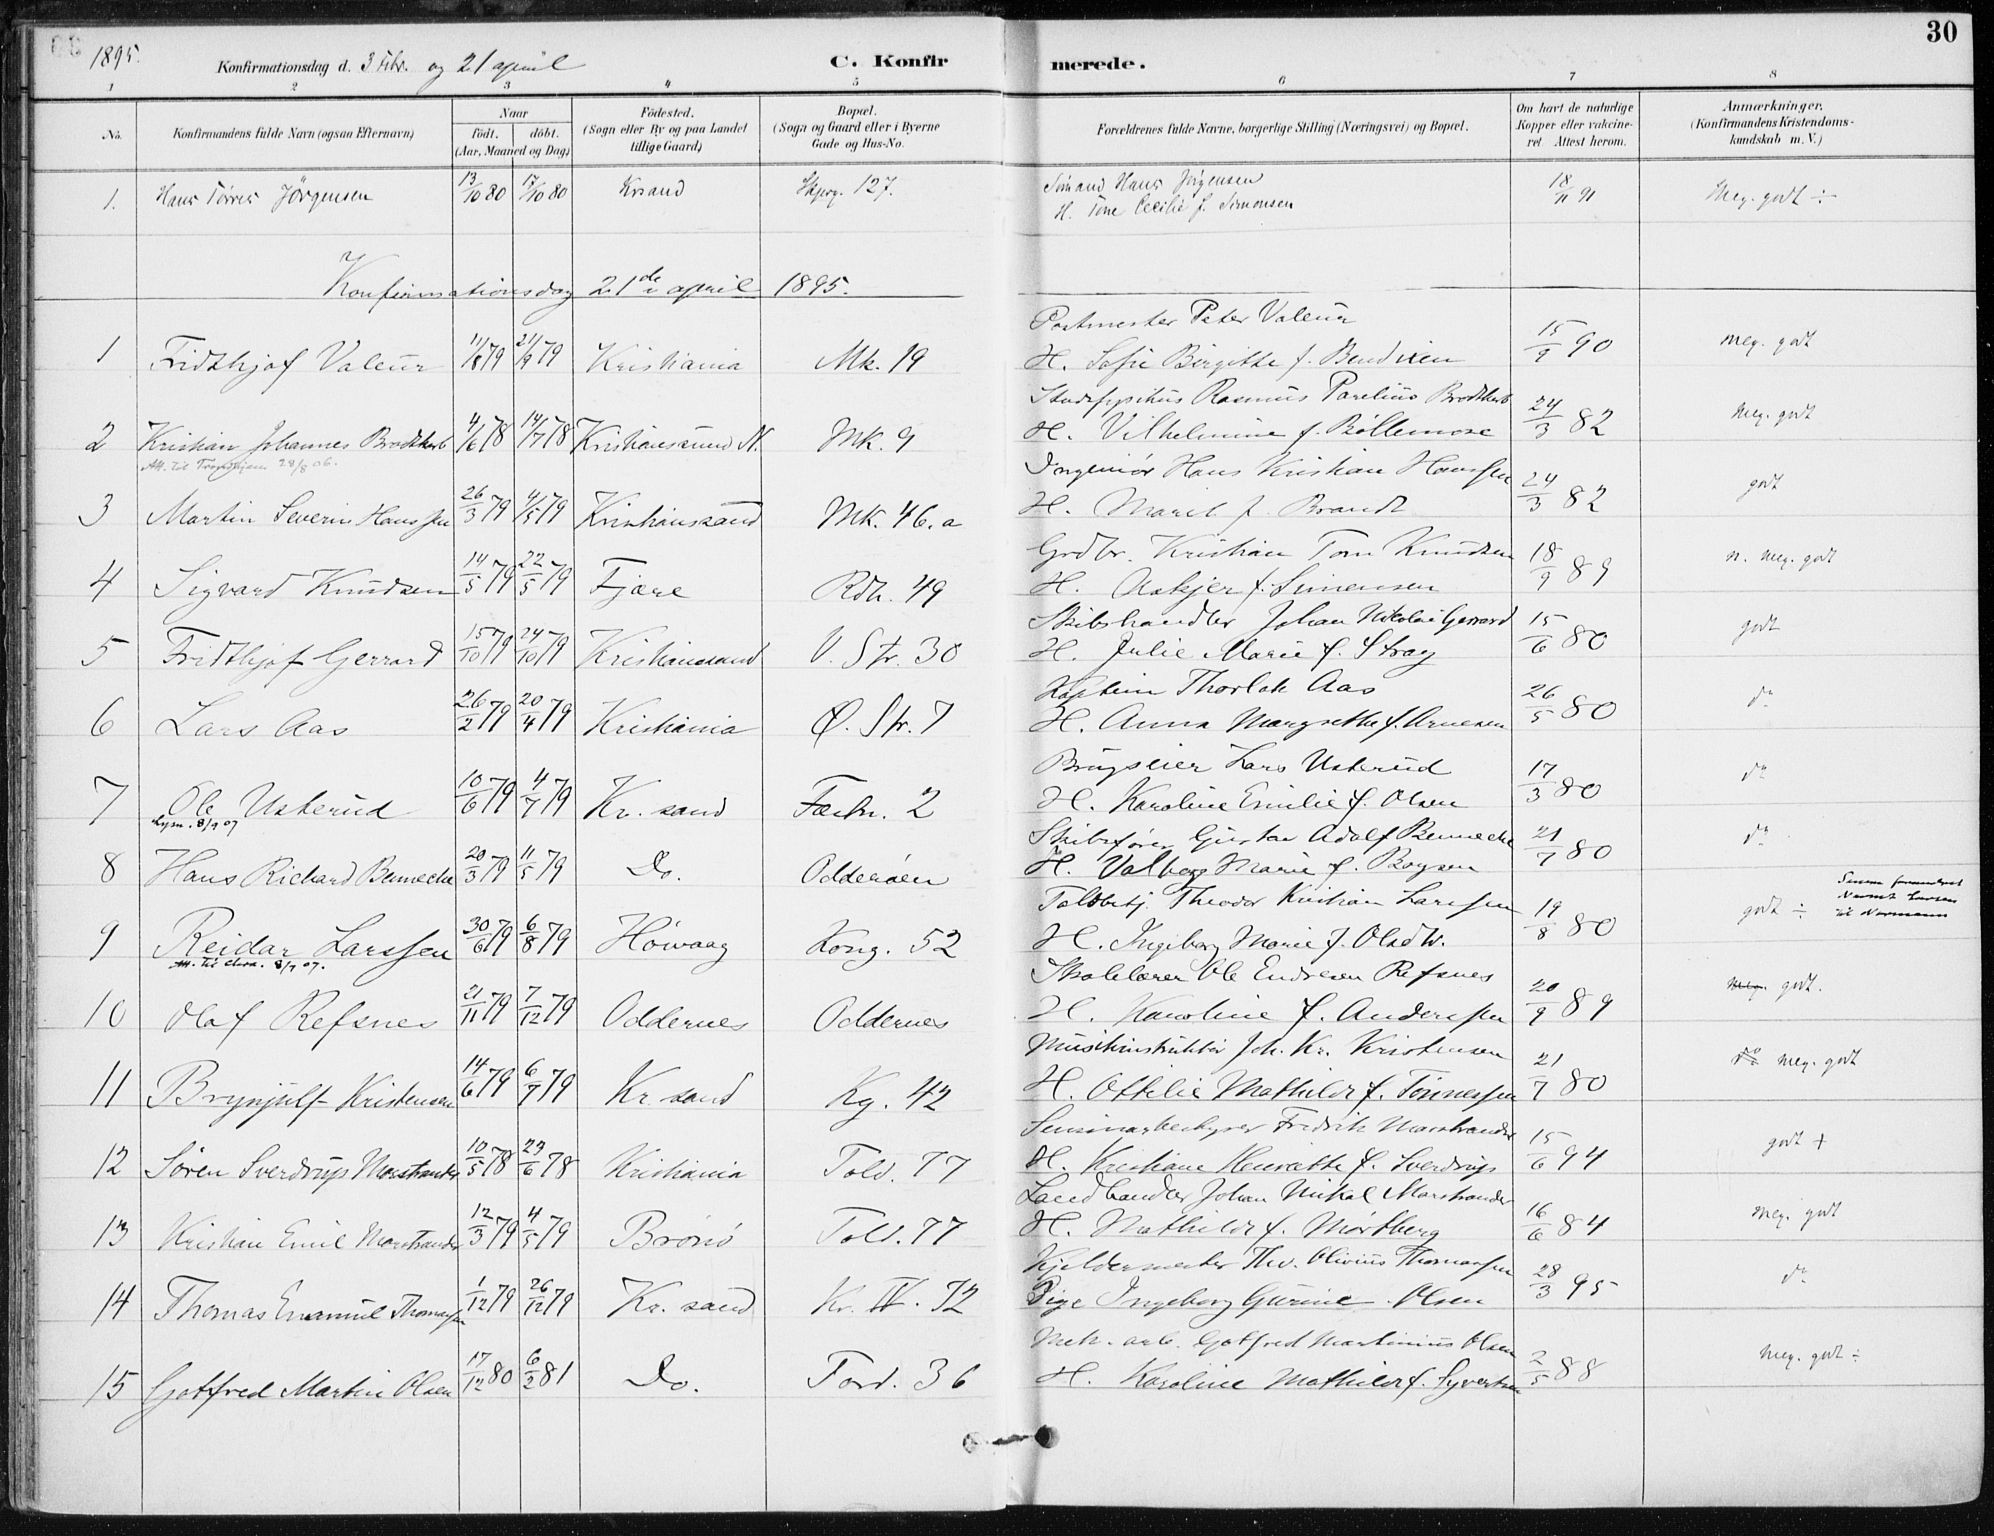 30
1895.
Konfirmationsdag d. 3 Febr. og 21 april
C. Konfirmerede.
1 2 3 4 5 6 7 8
No.
Konfirmandens fulde Navn (ogsaa Efternavn)
Naar
födt. döbt.
(Aar, Maaned og Dag)
Födested.
(Sogn eller By og paa Landet
tillige Gaard)
Bopæl.
(Sogn og Gaard eller i Byerne
Gade og Hus-No.
Forældrenes fulde Navne, borgerlige Stilling (Næringsvei) og Bopæl.
Om havt de naturlige
Kopper eller vakcine-
ret Attest herom.
Anmærkninger.
(Konfirmandens Kristendoms-
kundskab m. V.)
1. Hans Törres Jörgensen 13/10 80 17/10 80 Krsand 127. Hans Jörgensen
H. Tone Cecilie f. Simonsen 18/11 91 Meg. godt ÷
Konfirmationsdag 21de april 1895.
Postmester Peter Valeur
1 Fridthjof Valeur 11/8 79 21/9 79 Kristiania Mk. 19 H. Sofie Birgitte f. Bendixen 15/9 90 meg. godt
Stadsfysikus Rasmus Parelius Brodtkorb
2 Kristian Johannes Brodtkorb 4/6 78 14/7 78 Kristianssund N. Mk. 9 H. Vilhelmine f. Böllemose 24/3 82 Meg. godt
Att. til Trondhjem 28/8 06.
Ingeniör Hans Kristian Hanssen
3 Martin Severin Hanssen 26/3 79 4/5 79 Kristianssand Mk. 46.a H. Marit f. Brandt 24/3 82 godt
Grdbr. Kristian Tom Knudsen
4 Sigvard Knudsen 14/5 79 22/5 79 Fjære Rdh. 49 H. Askjer f. Simensen 18/9 89 n. meg. godt
Skibshandler Johan Nikolai Gerrard
5 Fridthjof Gerrard 15/10 79 24/10 79 Kristianssand V. Str. 30 H. Julie Marie f. Stray 15/6 80 godt
Kaptein Thorlak Aas
6 Lars Aas 26/2 79 20/4 79 Kristiania Ø. Str. 7 H. Anna Margrethe f. Arnesen 26/5 80 do
Brugseier Lars Usterud
7 Ole Usterud 10/6 79 4/7 79 Kr. sand Fæstn. 2 H. Karoline Emilie f. Olsen 17/3 80 do
8/9 07
Skibsfører Gustav Adolf Bennecke
8 Hans Richard Bennecke 20/3 79 11/5 79 Do. Odderøen H. Valborg Marie f. Boysen 21/7 80 do
Toldbetj. Theodor Kristian Larssen
9 Reidar Larssen 30/6 79 6/8 79 Høivaag Kong. 52 H. Ingeborg Marie f. Olsdtr. 19/8 80 godt ÷
Navnet Larsen
til Normann
Att. til Chra. 8/9 07.
Skolelærer Ole Endresen Refsnes
10 Olaf Refsnes 21/11 79 7/12 79 Oddernes Oddernes H. Karoline f. Anderssen 20/9 89 Meg. godt.
Musikinstruktör Joh. Kr. Kristensen
11 Brynjulf Kristensen 14/6 79 6/7 79 Kr. sand Kg. 42 H. Ottilie Mathilde f. Tönnessen 21/7 80 do meg. godt
Seminarbestyrer Fredrik Marstrander
12 Søren Sverdrup Marstrander 10/5 78 23/6 78 Kristiania Told. 77 H. Kristiane Henriette f. Sverdrup 15/6 94 godt +
Landhandler Johan Mikal Marstrander
13 Kristian Emil Marstrander 12/3 79 4/5 79 Brønø Told. 77 H. Mathilde f. Mørtberg 16/6 84 Meg. godt
Kjeldermester Thv. Olivius Thomassen
14 Thomas Emanuel Thomassen 1/12 79 26/12 79 Kr. sand Kv. IV. 72 Pige Ingeborg Gurine Olsen 28/3 95 do
Mek. arb. Gotfred Martinius Olsen
15 Gottfred Martin Olsen 17/12 80 6/2 81 Do. Tord. 36 H. Karoline Mathilde f. Syvertsen 2/5 88 Meg. godt ÷